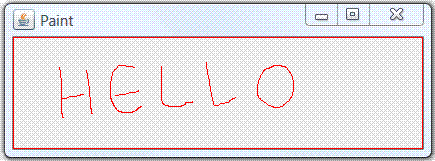 Paint
HELLO